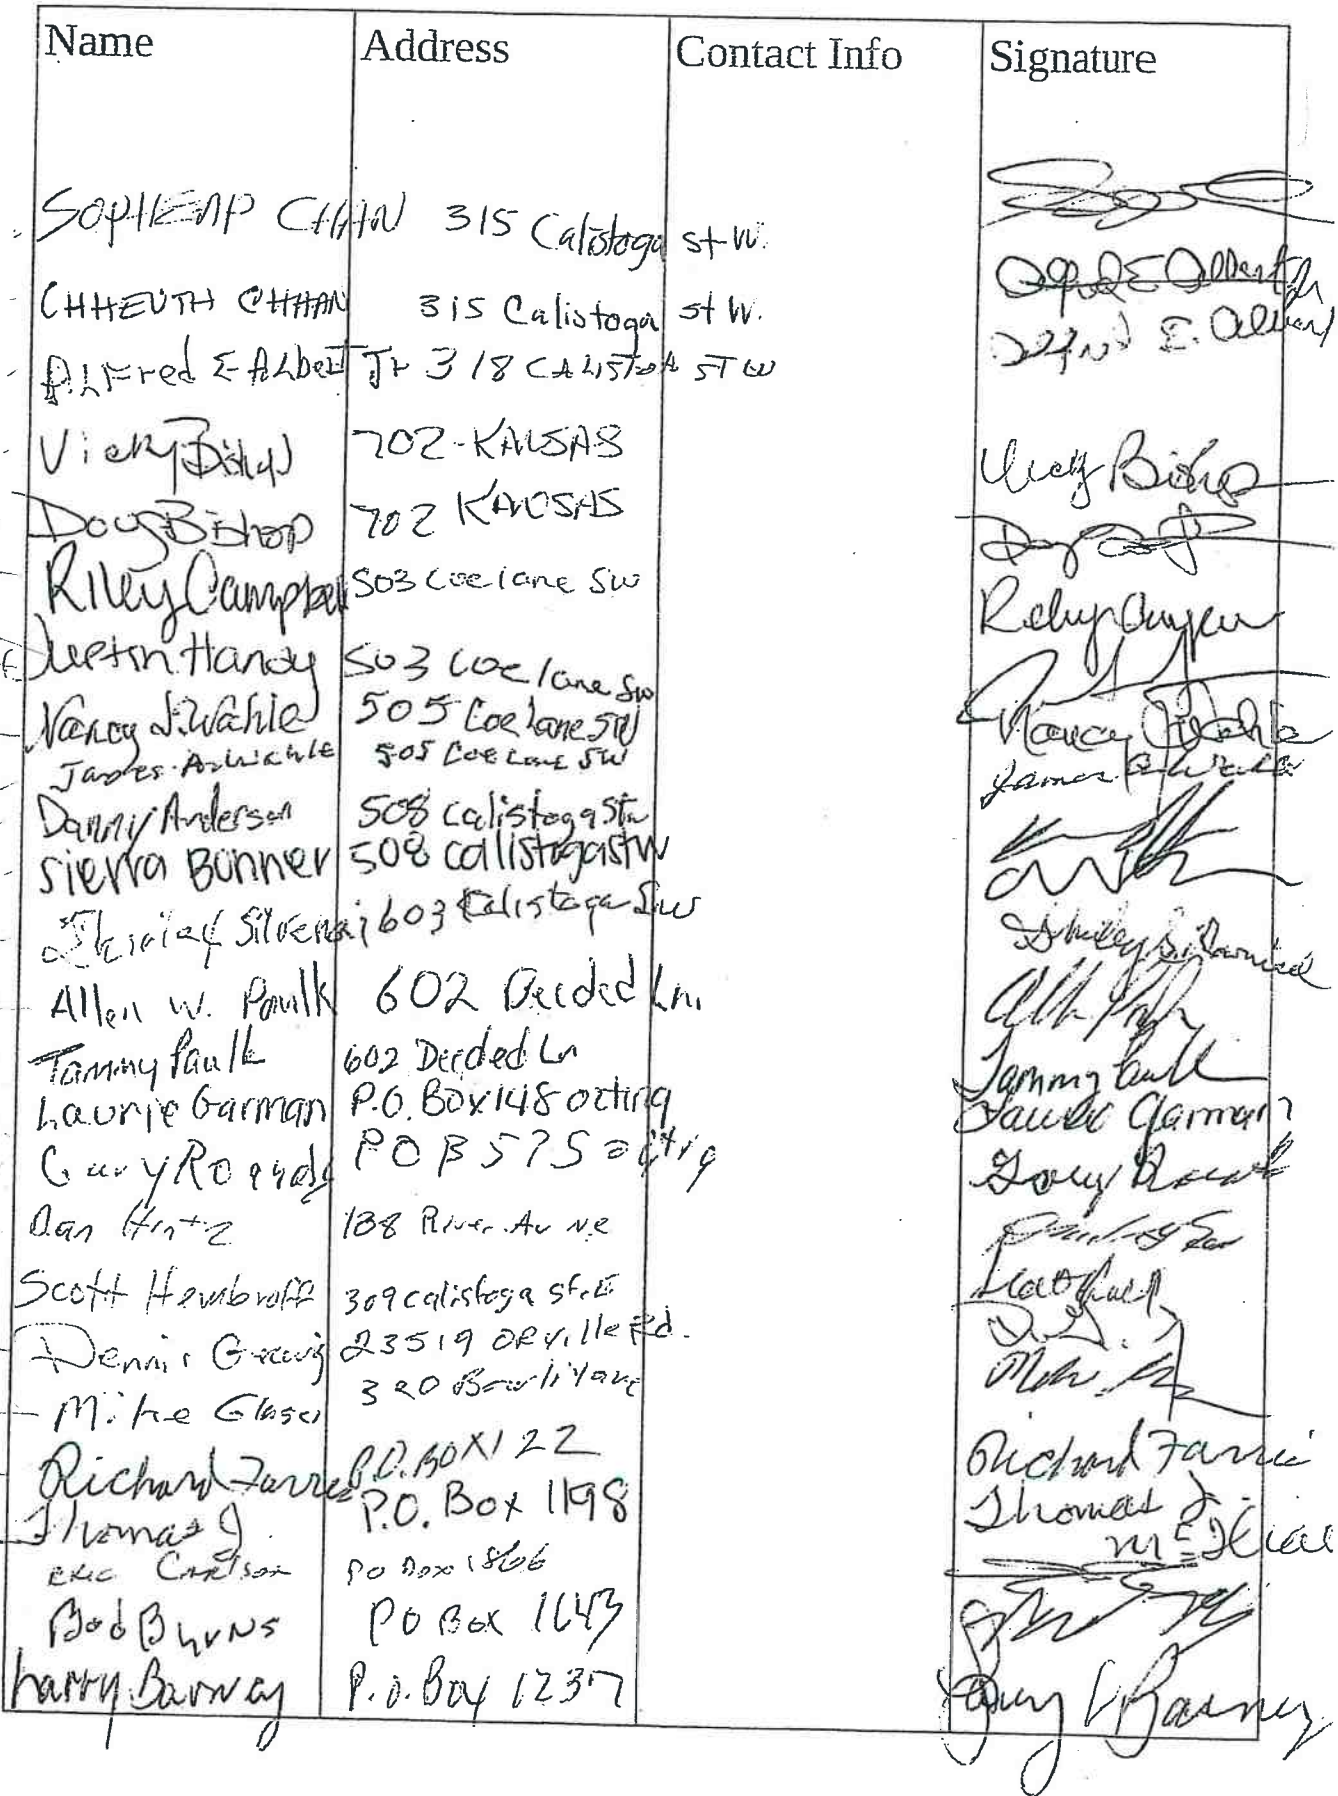 Name Address Contact Info Signature
SOPHEAP CHAN 315 Calistoga st W.
CHHEUTH CHHAN 315 Calistoga st W.
ALFred E Albert Jr 318 CALISTOA ST W
Alfred E Albert Jr
Alfred E. Albert
Vicky Bishop 702-KANSAS Vicky Bishop
Doug Bishop 702 KANSAS
Riley Campbell 503 Coe lane SW
Justin Handy 503 Coe lane SW
Nancy J. Wahle 505 Coe Lane SW Nancy J Wahle
James A. Wahle 505 Coe Lane SW James A. Wahle
Danny Anderson 508 Calistoga St W
Sierra Bonner 508 Callistoga st W
Shirley Silvernail 603 Calistoga SW Shirley Silvernail
Allen W. Paulk 602 Deeded Ln.
Tammy Paulk 602 Deeded Ln Tammy Paulk
Laurie Garman P.O. Box 148 orting Laurie Garman
Gary POB 575 orting Gary
Dan Hintz 138 River Av NE
Scott Hembroff 309 calistoga st. E
Dennis 23519 ORville Rd.
Mike Glaser 320
Richard Farris P.O. BOX 122 Richard Farris
Thomas J P.O. Box 1198 Thomas J.
Eric Carlson PO Box 1866
Bob Byrns PO Box 1643
Larry Barney P.O. Box 1237 Larry Barney